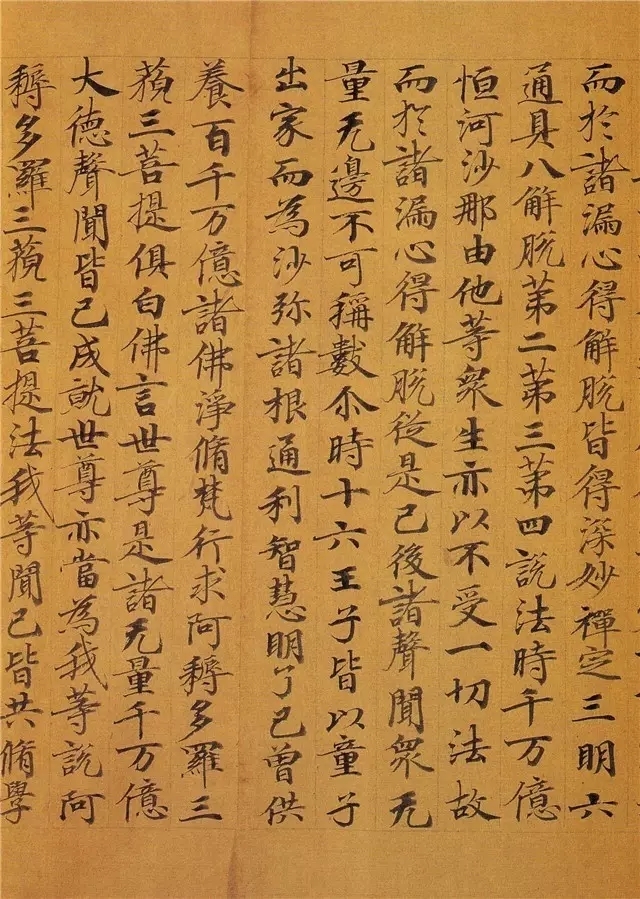 而於諸漏心得解脫皆得深妙禪定三明六
通具八解脫苐二苐三苐四說法時千万億
恒河沙那由他等衆生亦以不受一切法故
而於諸漏心得解脫從是已後諸聲聞衆无
量无邊不可稱數尒時十六王子皆以童子
出家而為沙弥諸根通利智慧明了已曾供
養百千万億諸佛淨脩梵行求阿耨多羅三
藐三菩提俱白佛言世尊是諸无量千万億
大德聲聞皆已成就世尊亦當為我等說阿
耨多羅三藐三菩提法我等聞已皆共脩學